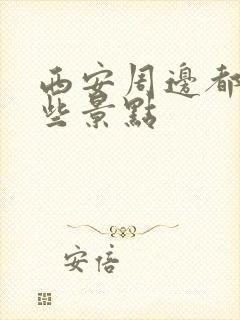 西安周邊都
些景點
安倍